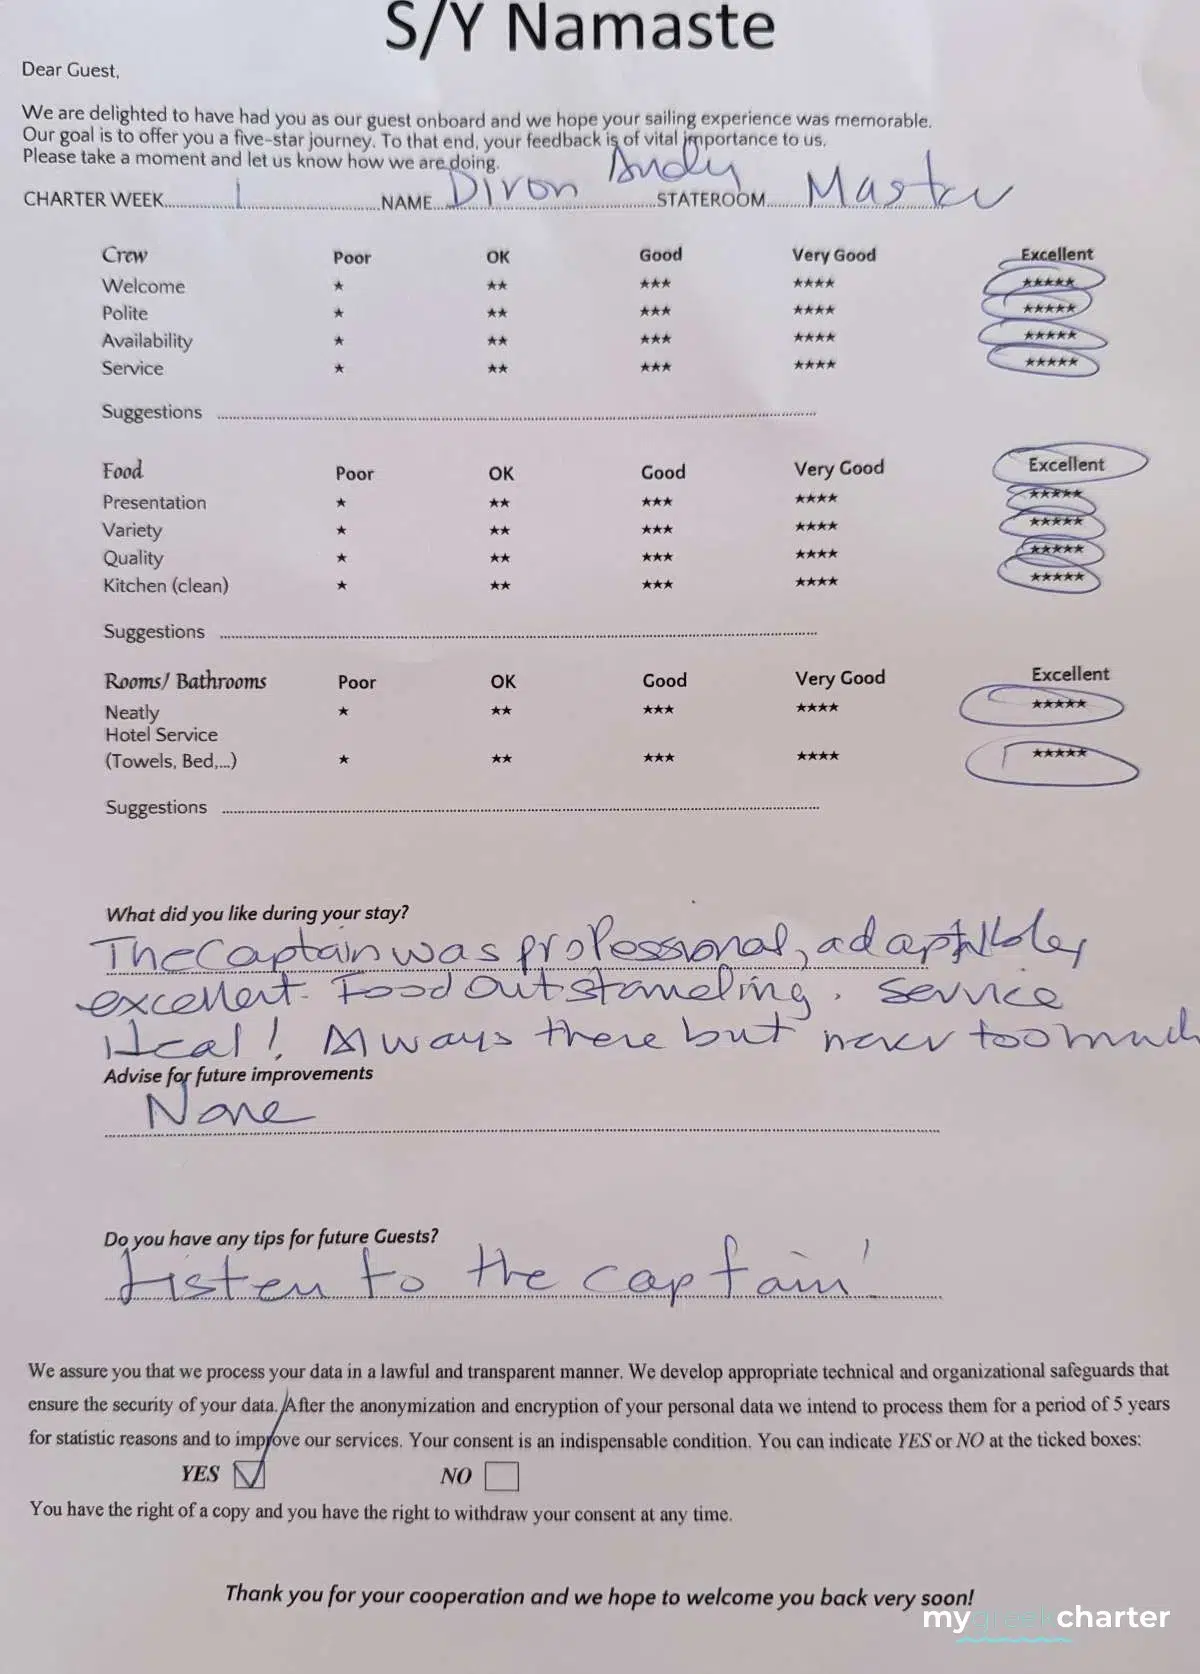 S/Y Namaste
Dear Guest,
We are delighted to have had you as our guest onboard and we hope your sailing experience was memorable.
Our goal is to offer you a five-star journey. To that end, your feedback is of vital importance to us.
Please take a moment and let us know how we are doing.
Andy
CHARTER WEEK 1 NAME Diron STATEROOM Master
Crew Poor OK Good Very Good Excellent
Welcome ★ ★★ ★★★ ★★★★ ★★★★★
Polite ★ ★★ ★★★ ★★★★ ★★★★★
Availability ★ ★★ ★★★ ★★★★ ★★★★★
Service ★ ★★ ★★★ ★★★★ ★★★★★
Suggestions
Food Poor OK Good Very Good Excellent
Presentation ★ ★★ ★★★ ★★★★ ★★★★★
Variety ★ ★★ ★★★ ★★★★ ★★★★★
Quality ★ ★★ ★★★ ★★★★ ★★★★★
Kitchen (clean) ★ ★★ ★★★ ★★★★ ★★★★★
Suggestions
Rooms/ Bathrooms Poor OK Good Very Good Excellent
Neatly ★ ★★ ★★★ ★★★★ ★★★★★
Hotel Service
(Towels, Bed,...) ★ ★★ ★★★ ★★★★ ★★★★★
Suggestions
What did you like during your stay?
The Captain was professional,
excellent. Food outstanding. Service
! Always there but never too much
Advise for future improvements
None
Do you have any tips for future Guests?
Listen to the captain!
We assure you that we process your data in a lawful and transparent manner. We develop appropriate technical and organizational safeguards that
ensure the security of your data. After the anonymization and encryption of your personal data we intend to process them for a period of 5 years
for statistic reasons and to improve our services. Your consent is an indispensable condition. You can indicate YES or NO at the ticked boxes:
YES NO
You have the right of a copy and you have the right to withdraw your consent at any time.
Thank you for your cooperation and we hope to welcome you back very soon!
mygreekcharter